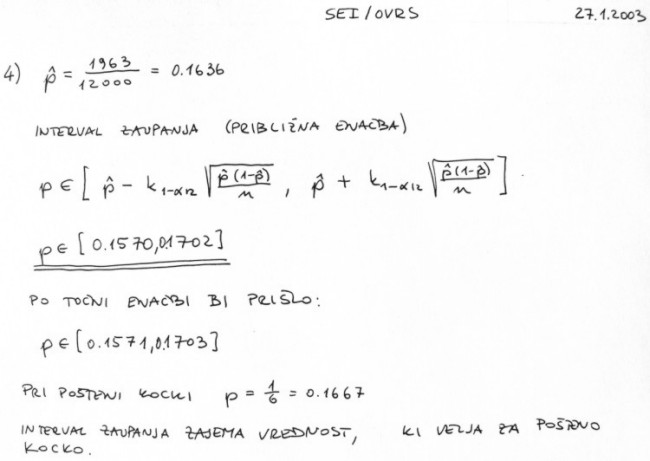 SEI/OVRS 27.1.2003
4) p̂ = 1963/12000 = 0.1636
INTERVAL ZAUPANJA (PRIBLIŽNA ENAČBA)
p ∈ [ p̂ - k₁₋α/₂ √(p̂(1-p̂)/n) , p̂ + k₁₋α/₂ √(p̂(1-p̂)/n) ]
p ∈ [0.1570,0.1702]
PO TOČNI ENAČBI BI PRIŠLO:
p ∈ [0.1571,0.1703]
PRI POŠTENI KOCKI p = 1/6 = 0.1667
INTERVAL ZAUPANJA ZAJEMA VREDNOST, KI VELJA ZA POŠTENO
KOCKO.